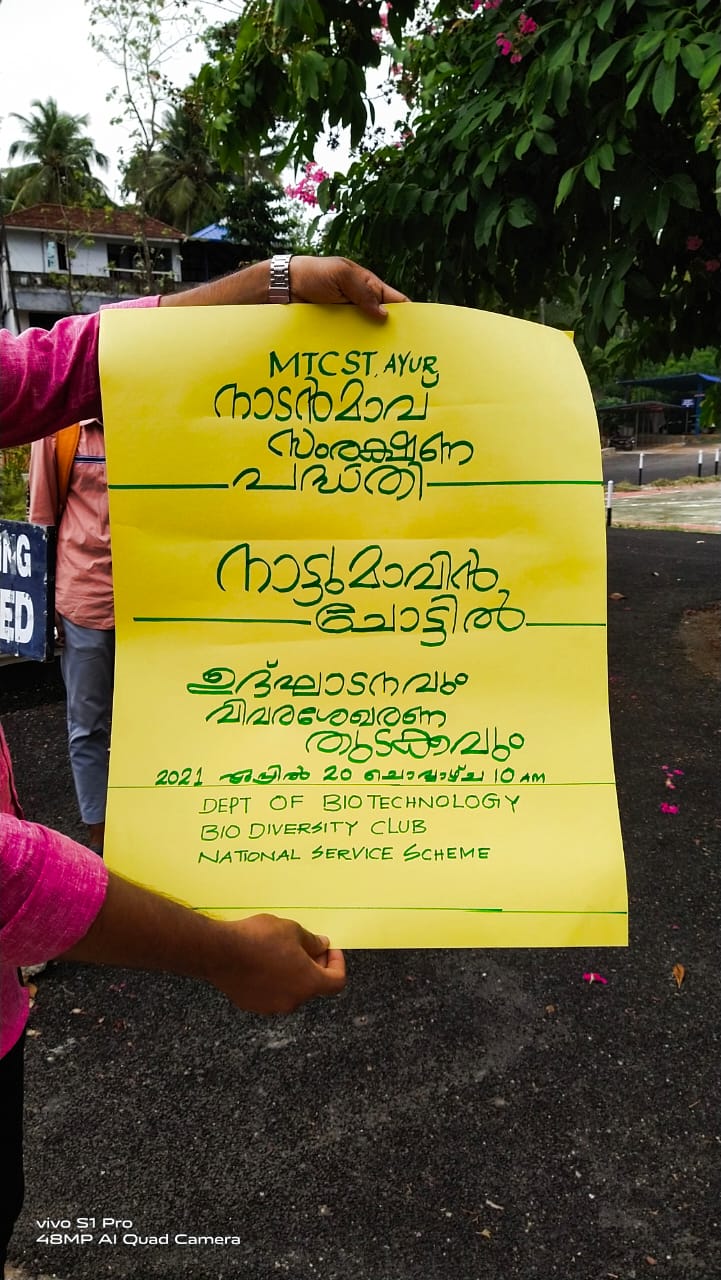 MTCST, AYUR
നാടൻമാവ്
സംരക്ഷണ
പദ്ധതി
നാട്ടുമാവിൻ
ചോട്ടിൽ
ഉദ്ഘാടനവും
വിവരശേഖരണ
തുടക്കവും
2021 ഏപ്രിൽ 20 ചൊവ്വാഴ്ച 10 AM
DEPT OF BIOTECHNOLOGY
BIO DIVERSITY CLUB
NATIONAL SERVICE SCHEME
NG
ED
vivo S1 Pro
48MP AI Quad Camera